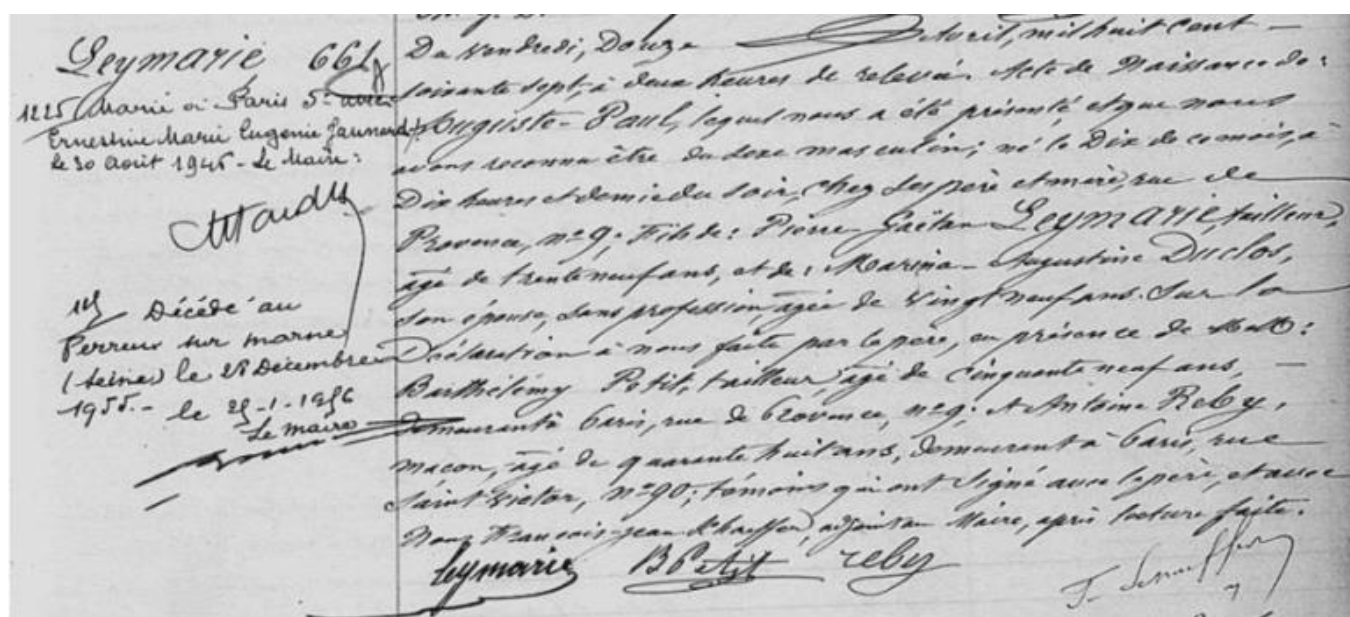 Leymarie 661
1225 Marié à Paris 5e avec
Ernestine Marie Eugénie
le 30 Août 1946 - Le Maire :
Décédé au
Perreux sur marne
(Seine) le 28 Décembre
1955.- le 25-1-1956
Le maire
Du Vendredi, Douze Avril, mil huit cent —
soixante sept, à deux heures de relevée. Acte de Naissance de :
Auguste-Paul, lequel nous a été présenté et que nous
avons reconnu être du sexe masculin ; né le Dix de ce mois, à
Dix heures et demie du soir, chez ses père et mère, rue de
Provence, n° 9 ; Fils de : Pierre-Gaëtan Leymarie, tailleur,
âgé de trente neuf ans, et de : Marina-Augustine Duclos,
son épouse, sans profession, âgée de vingt neuf ans. Sur la
Déclaration à nous faite par le père, en présence de MM :
Barthélemy Petit, tailleur, âgé de Cinquante neuf ans, —
demeurant à Paris, rue de Provence, n° 9 ; et Antoine Reby,
maçon, âgé de quarante huit ans, demeurant à Paris, rue
Saint Victor, n° 90 ; témoins qui ont signé avec le père, et avec
Nous François-Jean adjoint au Maire, après lecture faite.
Leymarie B Petit reby